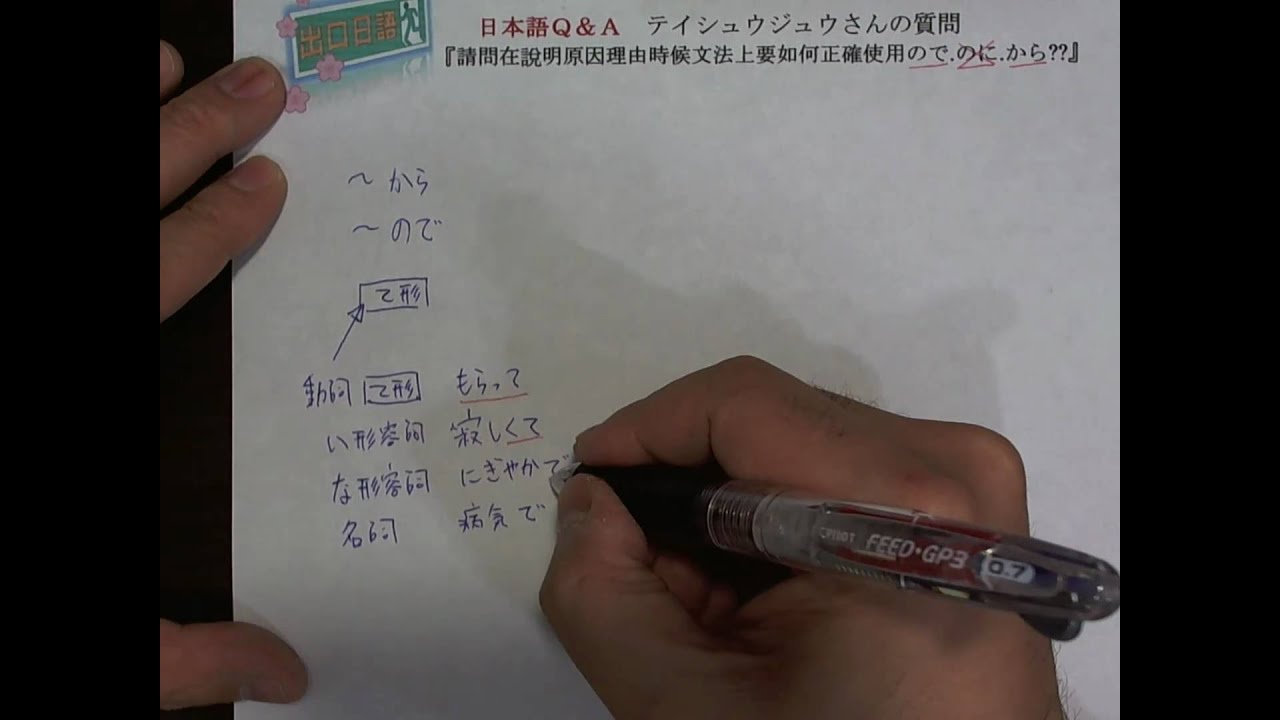 出口日語
日本語Q&A テイシュウジュウさんの質問
『請問在說明原因理由時候文法上要如何正確使用ので.のに.から??』
～から
～ので
て形
動詞 て形 もらって
い形容詞 寂しくて
な形容詞 にぎやかで
名詞 病気で
PILOT FEED・GP3 0.7